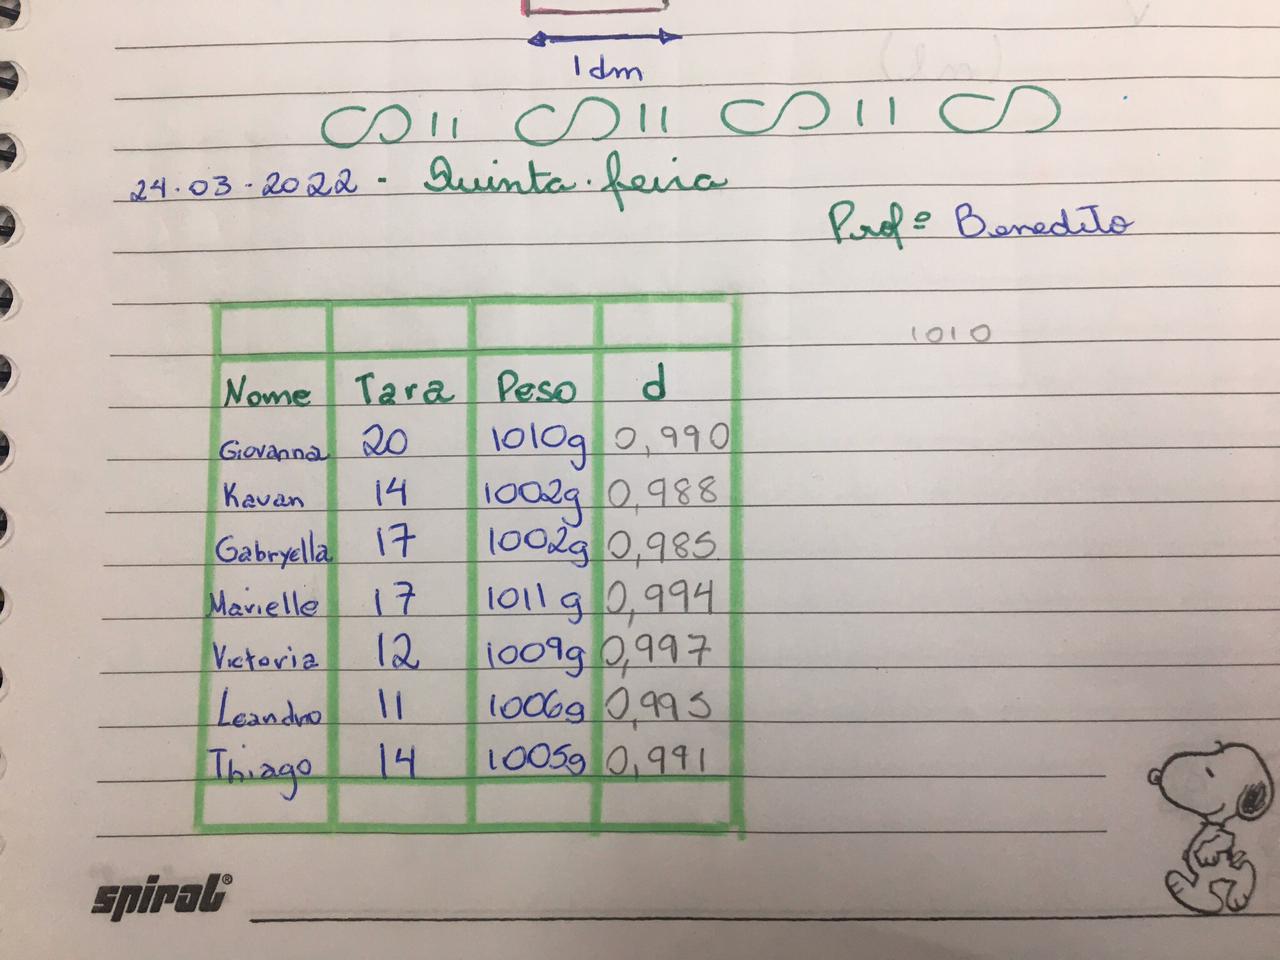 1 dm
24.03.2022 - Quinta.feira
Profº Benedito
1010
Nome Tara Peso d
Giovanna 20 1010g 0,990
Kauan 14 1002g 0,988
Gabryella 17 1002g 0,985
Marielle 17 1011g 0,994
Victoria 12 1009g 0,997
Leandro 11 1006g 0,995
Thiago 14 1005g 0,991
spiral®